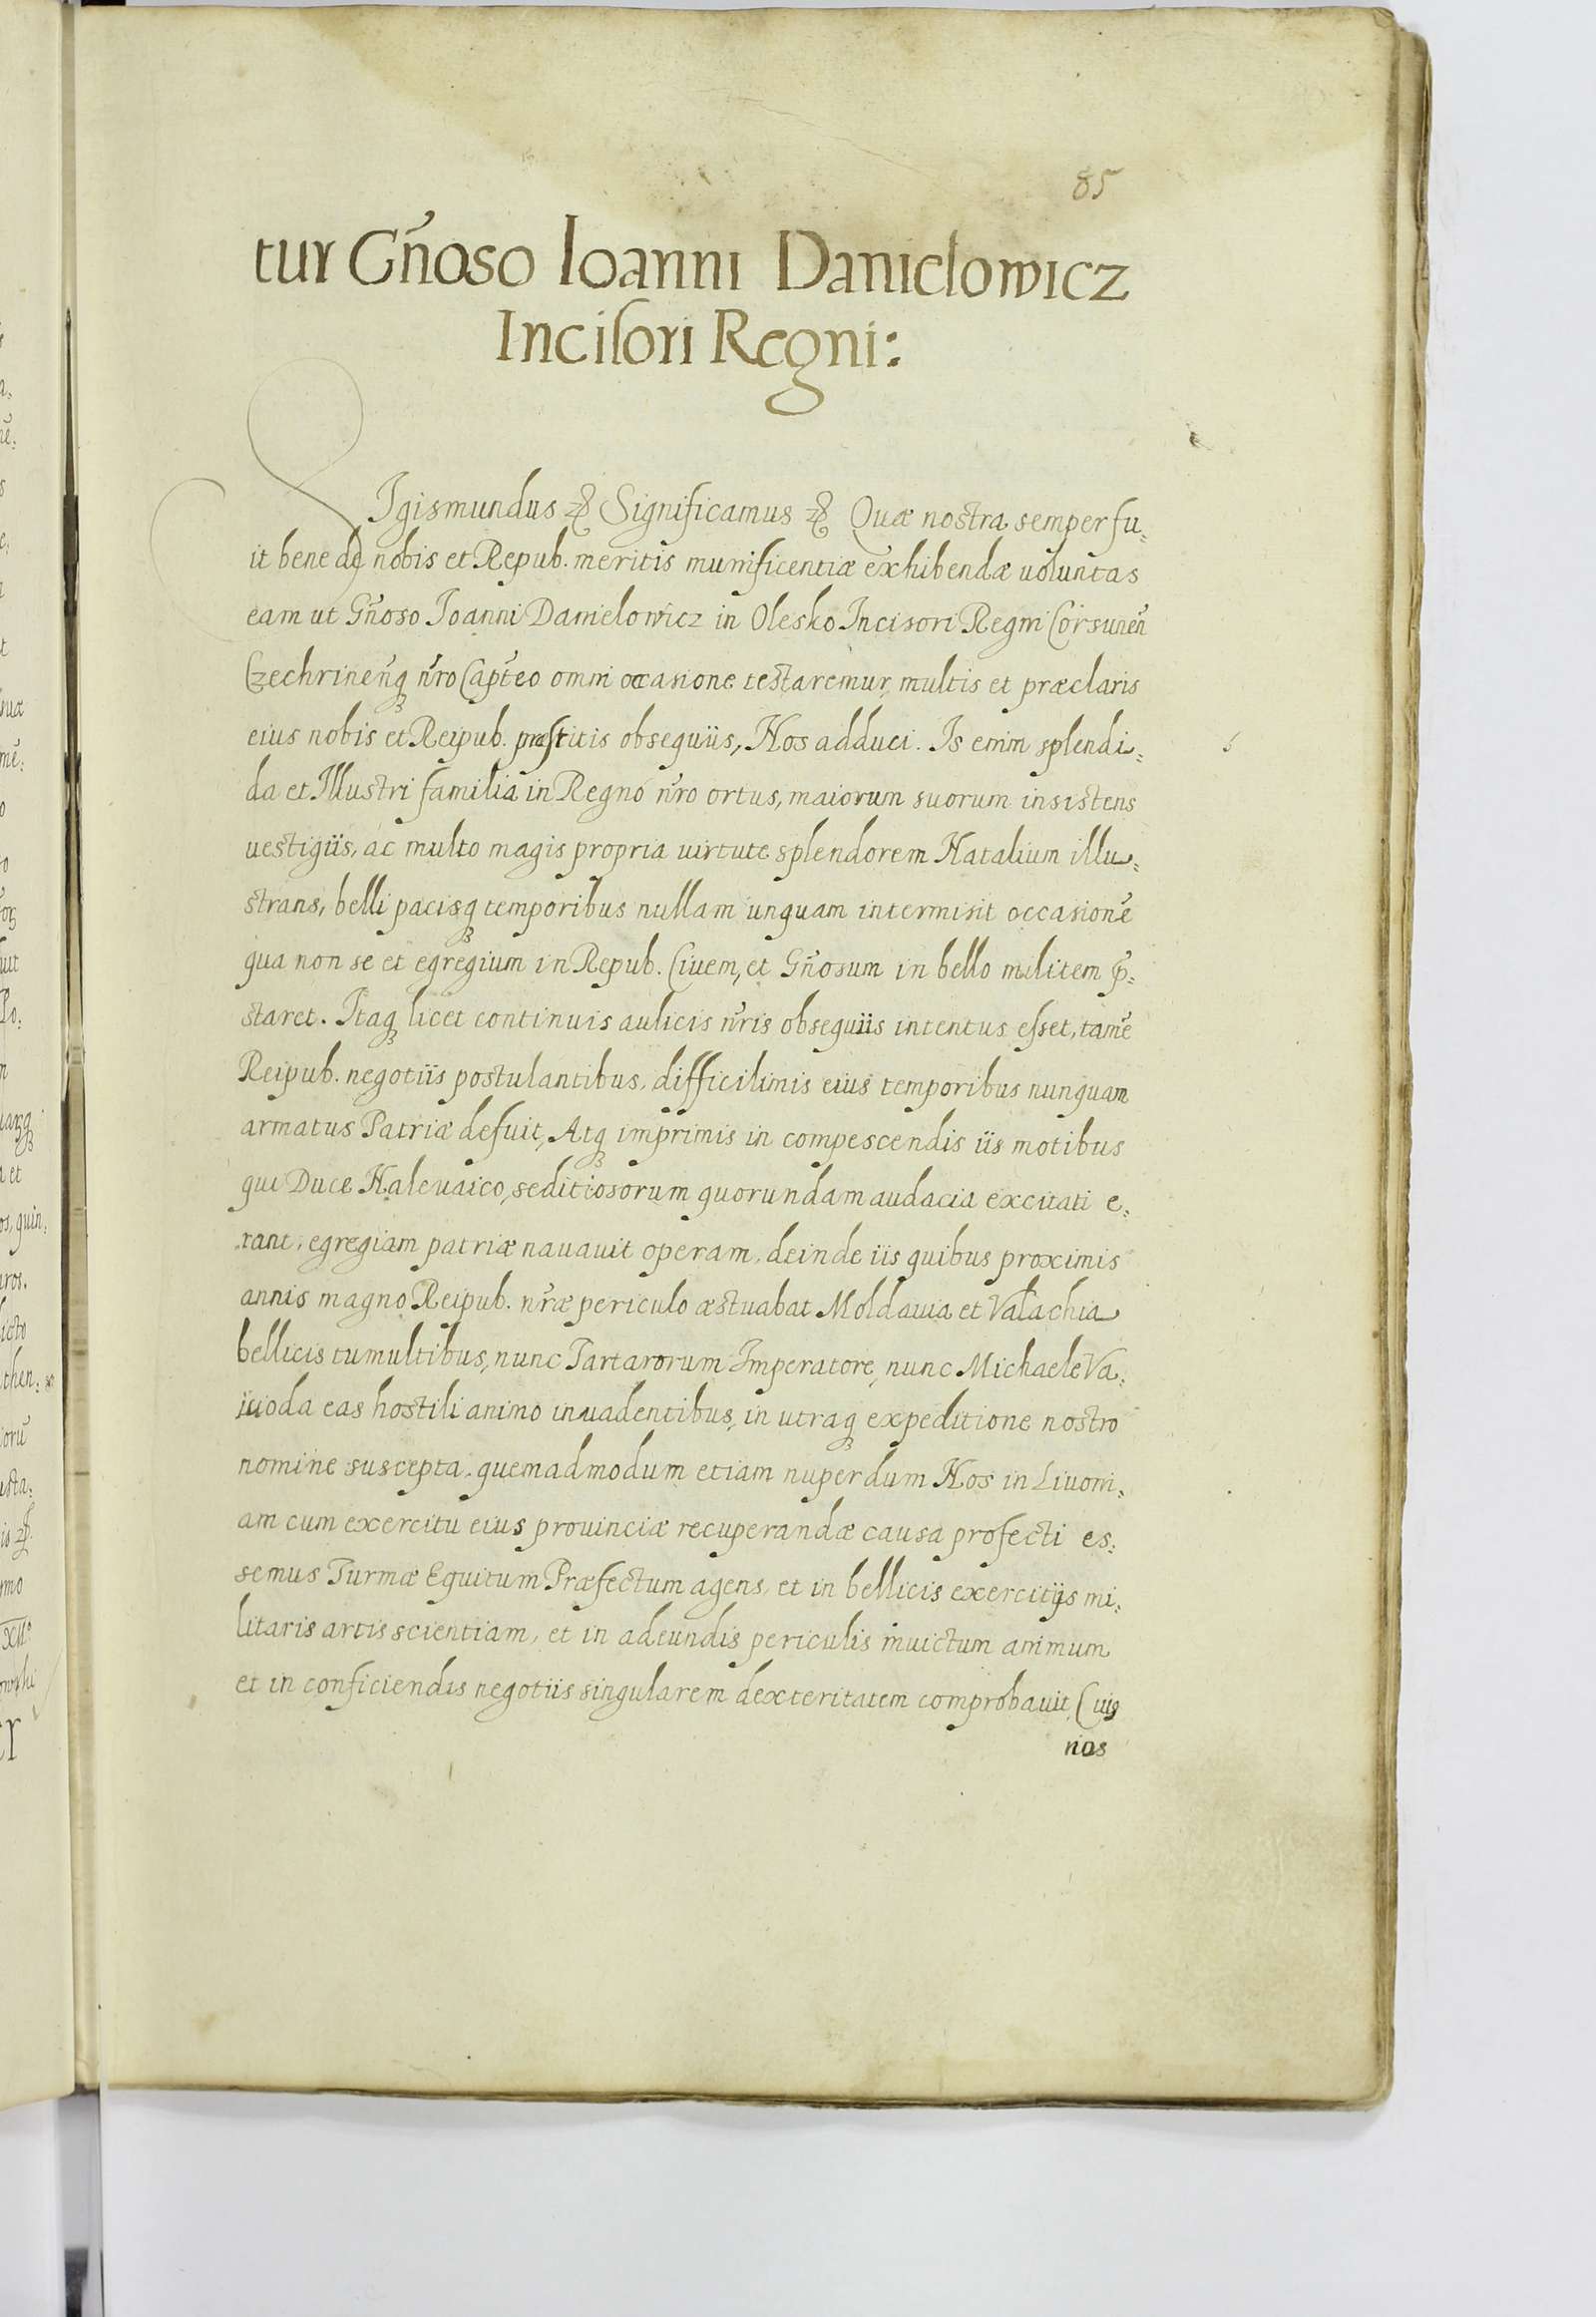 85
tur Gñoso Ioanni Danielowicz
Incisori Regni:
SIgismundus &c Significamus &c Quæ nostra semper fu,
it bene de nobis et Repub. meritis munificentiæ exhibendæ uoluntas
eam ut Gñoso Ioanni Danielowicz in Olesko Incisori Regni Corsuneñ
Czechrineñq nr̃o Capt̃eo omni occasione testaremur, multis et præclaris
eius nobis et Reipub. præstitis obsequiis, Nos adduci. Is enim splendi,
da et Illustri familia in Regno nr̃o ortus, maiorum suorum insistens
uestigiis, ac multo magis propria uirtute splendorem Natalium illu,
strans, belli pacisq temporibus nullam unquam intermisit occasionẽ
qua non se et egregium in Repub. Ciuem, et Gñosum in bello militem p̃,
staret. Itaq licet continuis aulicis nr̃is obsequiis intentus esset, tamẽ
Reipub. negotiis postulantibus, difficilimis eius temporibus nunquam
armatus Patriæ defuit, Atq imprimis in compescendis iis motibus
qui Duce Naleuaico, seditiosorum quorundam audacia excitati e,
rant, egregiam patriæ nauauit operam, deinde iis quibus proximis
annis magno Reipub. nr̃æ periculo æstuabat Moldauia et Valachia
bellicis tumultibus, nunc Tartarorum Imperatore, nunc Michaele Va,
iuoda eas hostili animo inuadentibus, in utraq expeditione nostro
nomine suscepta, quemadmodum etiam nuper dum Nos in Liuoni,
am cum exercitu eius prouinciæ recuperandæ causa profecti es,
semus Turmæ Equitum Præfectum agens, et in bellicis exercitijs mi,
litaris artis scientiam, et in adeundis periculis inuictum animum
et in conficiendis negotiis singularem dexteritatem comprobauit, Cuiꝯ
nos